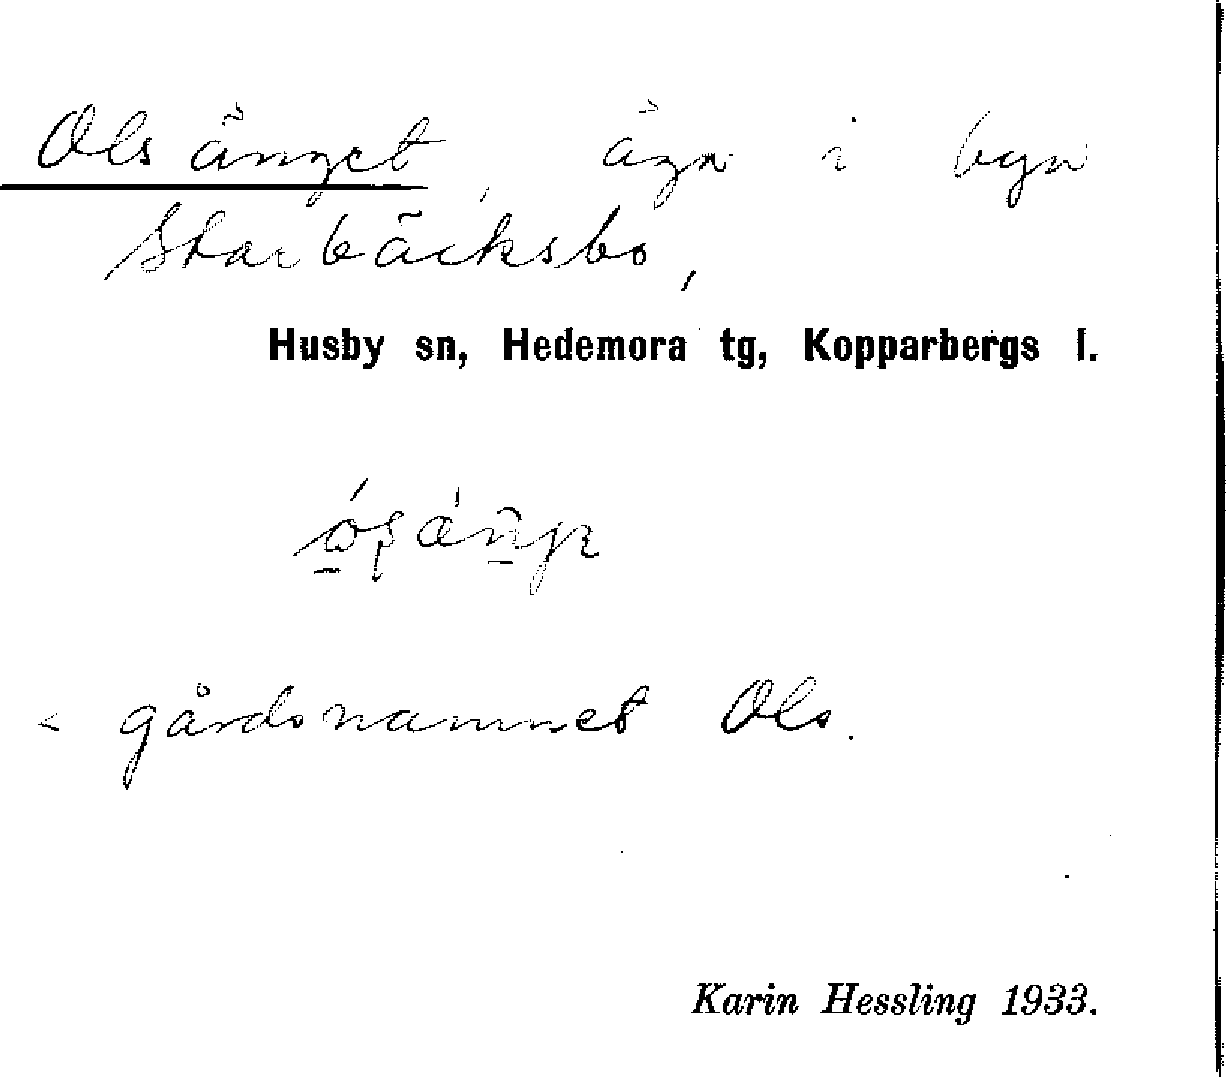 Olsänget, ägn i byn
Starbäcksbo,
Husby sn, Hedemora tg, Kopparbergs l.
< gårdsnamnet Ols.
Karin Hessling 1933.